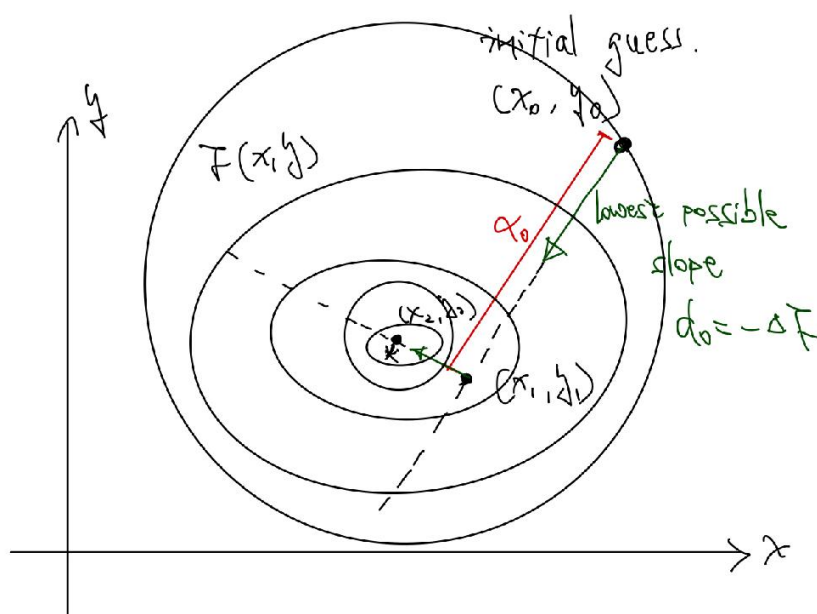 initial guess.
(x₀, y₀)
y
F(x,y)
α₀
lowest possible
slope
d₀ = -ΔF
(x₂, y₂)
(x₁, y₁)
x